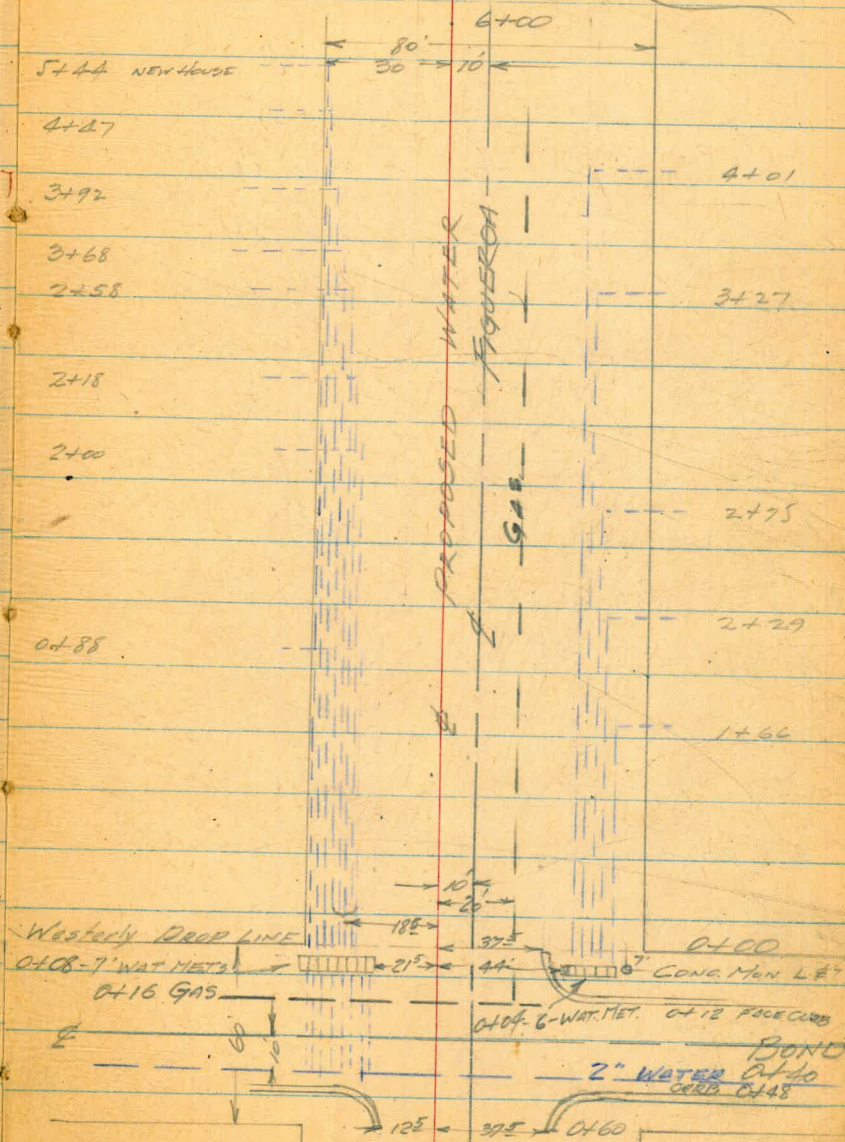 6+00
80'
30 10'
5+44 NEW HOUSE
4+47
4+01
3+92
3+68
2+58
3+27
2+18
2+00
2+75
2+29
0+88
1+66
PROPOSED WATER
FIGUEROA
GAS
℄
℄
10'
20'
18⁵
Westerly DROP LINE
37⁵
0+00
0+08-7' WAT METS
21⁵ 44'
7'
CONC. MON L #7
0+16 GAS
0+04-6-WAT. MET. 0+12 FACE CURB
℄
60'
10'
BOND
2" WATER 0+40
CURB 0+48
12⁵ 37⁵ 0+60